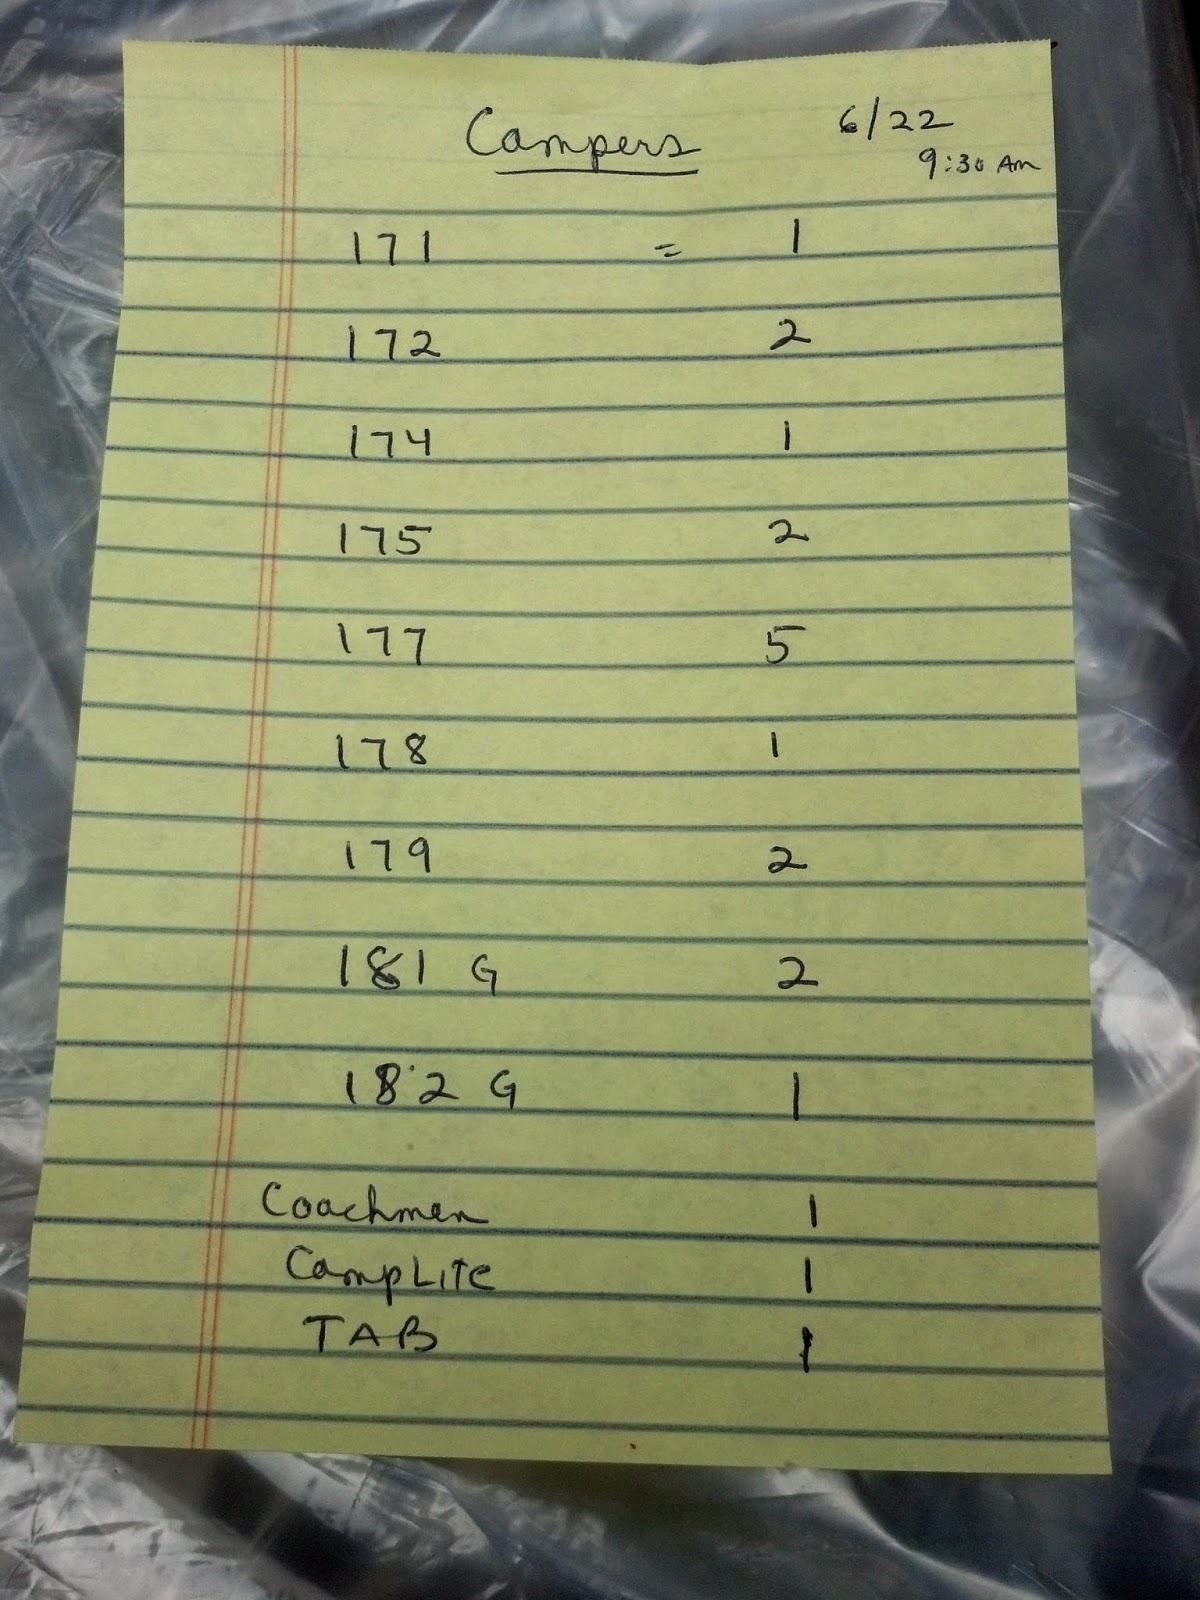 Campers 6/22
9:30 Am
171 = 1
172 2
174 1
175 2
177 5
178 1
179 2
181 G 2
182 G 1
Coachmen 1
CampLite 1
TAB 1